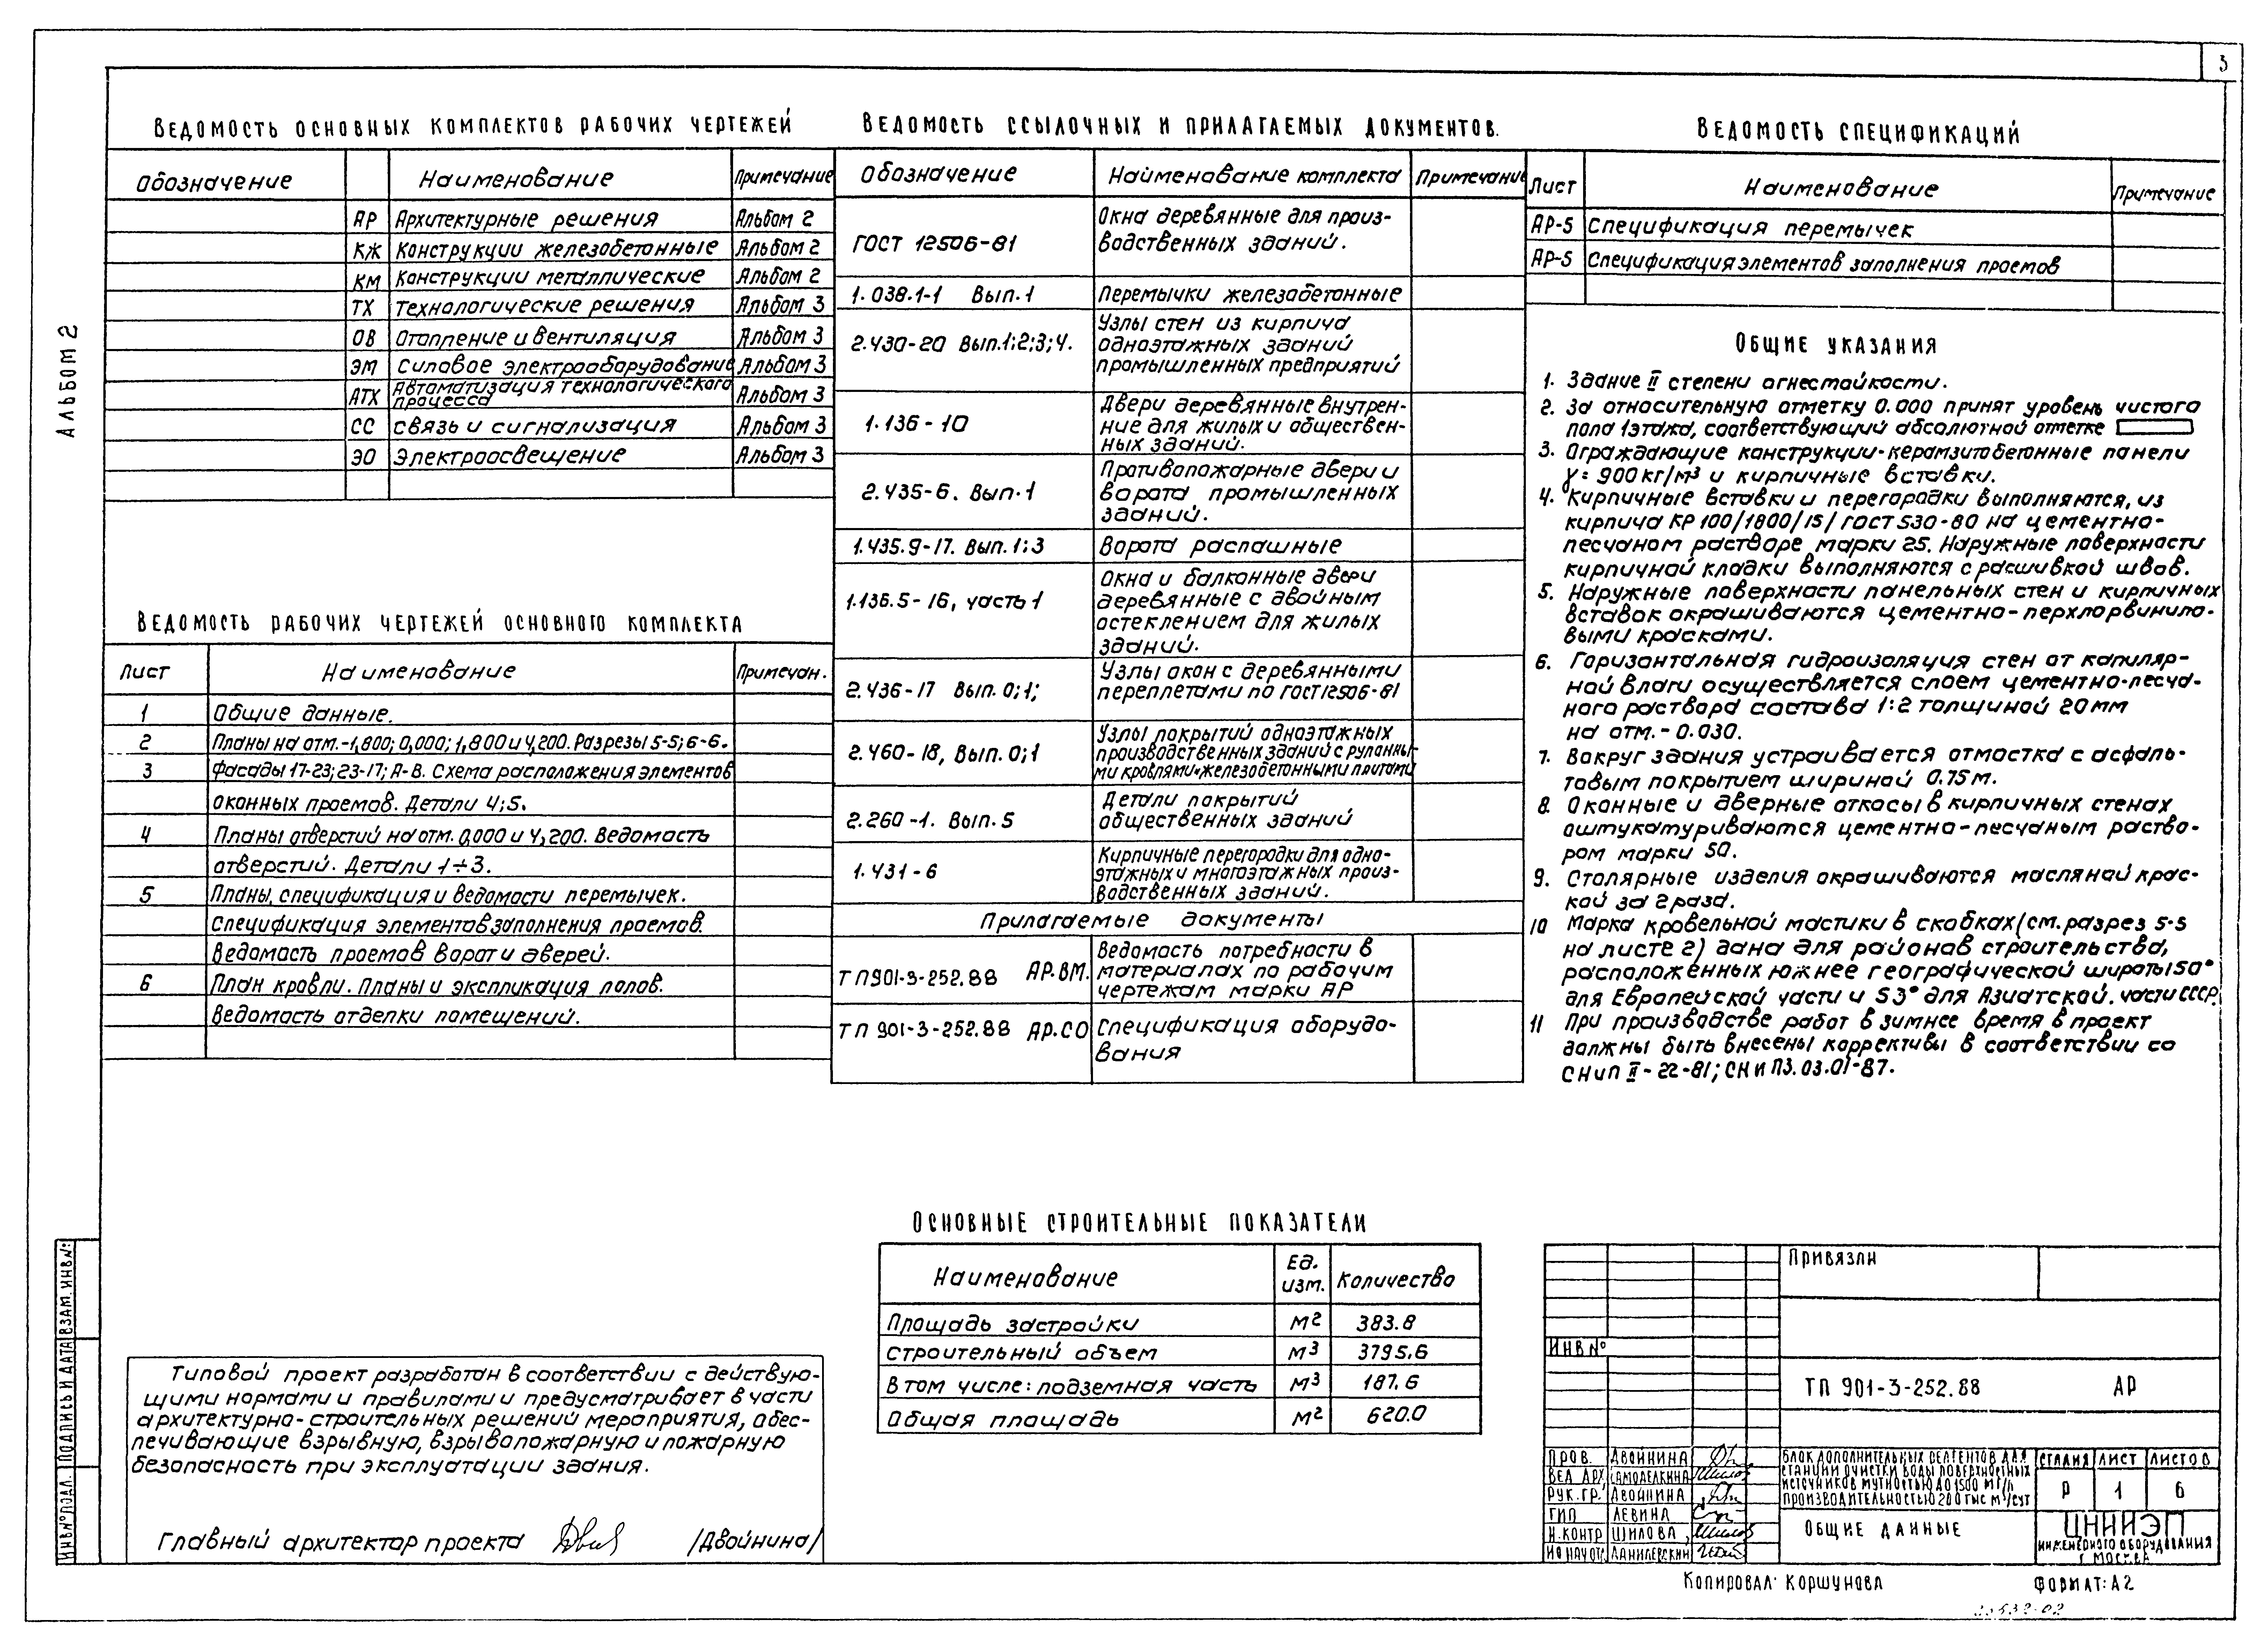 3
Альбом 2
Ведомость основных комплектов рабочих чертежей
Обозначение | Наименование | Примечание
АР Архитектурные решения Альбом 2
КЖ Конструкции железобетонные Альбом 2
КМ Конструкции металлические Альбом 2
ТХ Технологические решения Альбом 3
ОВ Отопление и вентиляция Альбом 3
ЭМ Силовое электрооборудование Альбом 3
АТХ Автоматизация технологического
процесса Альбом 3
СС Связь и сигнализация Альбом 3
ЭО Электроосвещение Альбом 3
Ведомость рабочих чертежей основного комплекта
Лист Наименование Примечан.
1 Общие данные.
2 Планы на отм.-1,800; 0,000; 1,800 и 4,200. Разрезы 5-5; 6-6.
3 Фасады 17-23; 23-17; А-В. Схема расположения элементов
оконных проемов. Детали 4; 5.
4 Планы отверстий на отм. 0,000 и 4,200. Ведомость
отверстий. Детали 1÷3.
5 Планы, спецификация и ведомости перемычек.
Спецификация элементов заполнения проемов.
Ведомость проемов ворот и дверей.
6 План кровли. Планы и экспликация полов.
Ведомость отделки помещений.
Ведомость ссылочных и прилагаемых документов.
Обозначение Наименование комплекта Примечание
ГОСТ 12506-81 Окна деревянные для произ-
водственных зданий.
1.038.1-1 Вып.1 Перемычки железобетонные
2.430-20 Вып.1;2;3;4. Узлы стен из кирпича
одноэтажных зданий
промышленных предприятий
1.136-10 Двери деревянные внутрен-
ние для жилых и обществен-
ных зданий.
2.435-6. Вып.1 Противопожарные двери и
ворота промышленных
зданий.
1.435.9-17. Вып.1;3 Ворота распашные
1.136.5-16, часть 1 Окна и балконные двери
деревянные с двойным
остеклением для жилых
зданий.
2.436-17 Вып. 0;1; Узлы окон с деревянными
переплетами по ГОСТ12506-81
2.460-18, Вып. 0;1 Узлы покрытий одноэтажных
производственных зданий с рулонны-
ми кровлями и железобетонными плитами
2.260-1. Вып. 5 Детали покрытий
общественных зданий
1.431-6 Кирпичные перегородки для одно-
этажных и многоэтажных произ-
водственных зданий.
Прилагаемые документы
ТП901-3-252.88 АР.ВМ. Ведомость потребности в
материалах по рабочим
чертежам марки АР
ТП 901-3-252.88 АР.СО Спецификация оборудо-
вания
Ведомость спецификаций
Лист Наименование Примечание
АР-5 Спецификация перемычек
АР-5 Спецификация элементов заполнения проемов
Общие указания
1. Здание II степени огнестойкости.
2. За относительную отметку 0.000 принят уровень чистого
пола 1этажа, соответствующий абсолютной отметке
3. Ограждающие конструкции-керамзитобетонные панели
γ = 900 кг/м³ и кирпичные вставки.
4. Кирпичные вставки и перегородки выполняются, из
кирпича КР 100/1800/15/ ГОСТ 530-80 на цементно-
песчаном растворе марки 25. Наружные поверхности
кирпичной кладки выполняются с расшивкой швов.
5. Наружные поверхности панельных стен и кирпичных
вставок окрашиваются цементно-перхлорвинило-
выми красками.
6. Горизонтальная гидроизоляция стен от капиляр-
ной влаги осуществляется слоем цементно-песча-
ного раствора состава 1:2 толщиной 20 мм
на отм. - 0.030.
7. Вокруг здания устраивается отмостка с асфаль-
товым покрытием шириной 0.75 м.
8. Оконные и дверные откосы в кирпичных стенах
оштукатуриваются цементно-песчаным раство-
ром марки 50.
9. Столярные изделия окрашиваются масляной крас-
кой за 2 раза.
10 Марка кровельной мастики в скобках (см. разрез 5-5
на листе 2) дана для районов строительства,
расположенных южнее географической широты 50°
для Европейской части и 53° для Азиатской. части СССР.
11 При производстве работ в зимнее время в проект
должны быть внесены коррективы в соответствии со
СНиП II-22-81; СНиП3.03.01-87.
Основные строительные показатели
Наименование Ед. изм. Количество
Площадь застройки м² 383.8
Строительный объем м³ 3795.6
В том числе: подземная часть м³ 187.6
Общая площадь м² 620.0
Типовой проект разработан в соответствии с действую-
щими нормами и правилами и предусматривает в части
архитектурно-строительных решений мероприятия, обес-
печивающие взрывную, взрывопожарную и пожарную
безопасность при эксплуатации здания.
Главный архитектор проекта /Двойнина/
Инв№подл. Подпись и дата Взам. инв№
Привязан
Инв №
ТП 901-3-252.88 АР
Пров. Двойнина
Вед. арх. Самоделкина
Рук. гр. Двойнина
ГИП Левина
Н.контр Шилова
ИО нач от. Данилевский
Блок дополнительных реагентов для
станции очистки воды поверхностных
источников мутностью до 1500 мг/л
производительностью 200 тыс м³/сут
Стадия Лист Листов
Р 1 6
Общие данные
ЦНИИЭП
инженерного оборудования
г. Москва
Копировал: Коршунова
Формат: А2